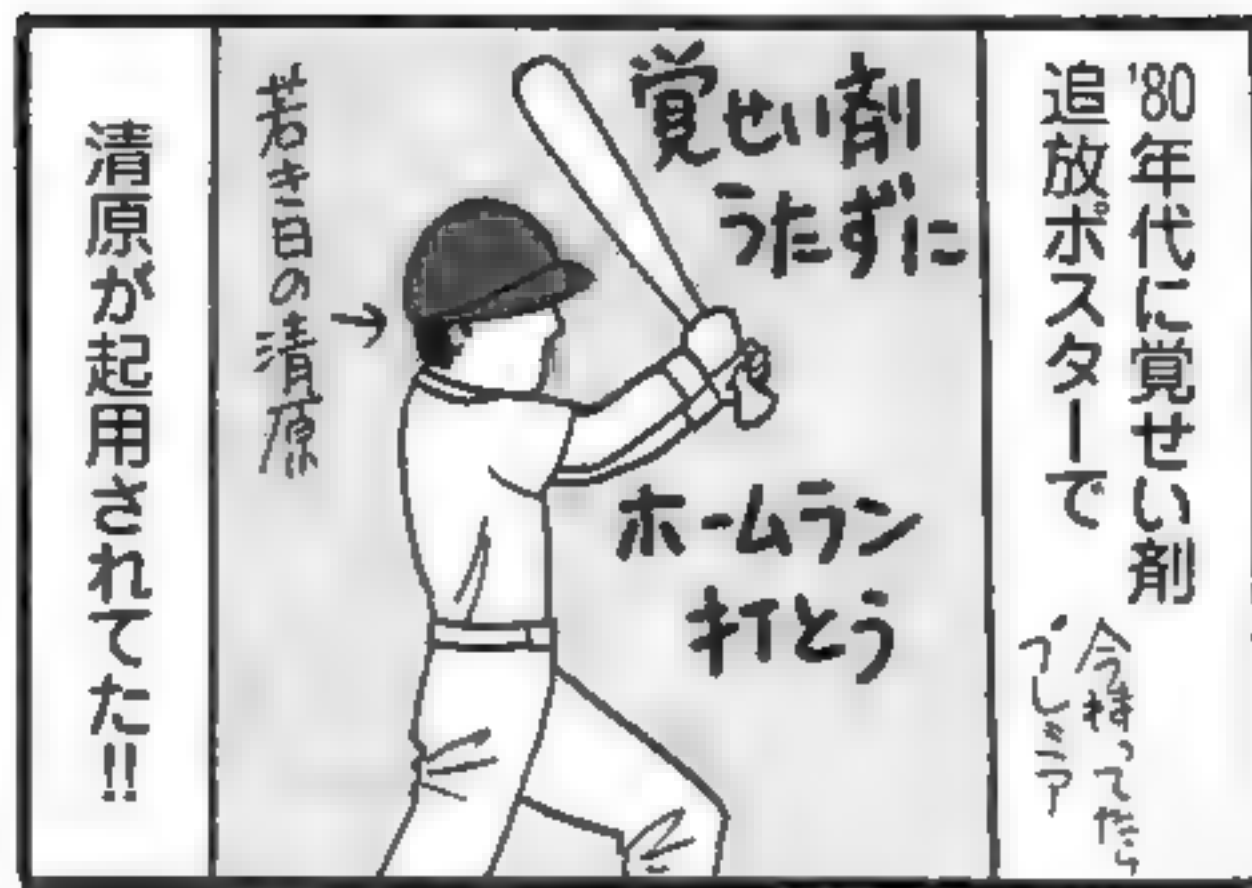 '80年代に覚せい剤
追放ポスターで
今持ってたら
プレミア
覚せい剤
うたずに
ホームラン
打とう
若き日の清原
清原が起用されてた!!